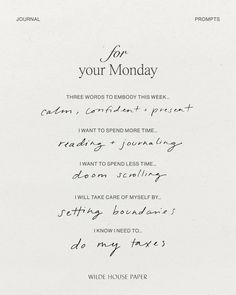 JOURNAL PROMPTS
for
your Monday
THREE WORDS TO EMBODY THIS WEEK...
calm, confident + present
I WANT TO SPEND MORE TIME...
reading + journaling
I WANT TO SPEND LESS TIME...
doom scrolling
I WILL TAKE CARE OF MYSELF BY...
setting boundaries
I KNOW I NEED TO...
do my taxes
WILDE HOUSE PAPER